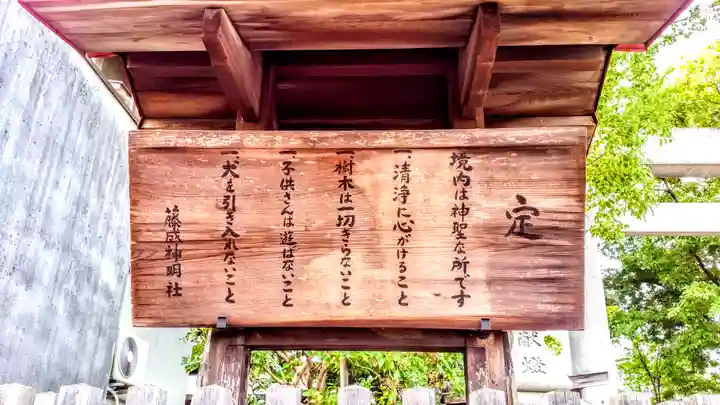 定
境内は神聖な所です
一、清浄に心がけること
一、樹木は一切きらないこと
一、子供さんは遊ばないこと
一、犬を引き入れないこと
籐成神明社
献燈